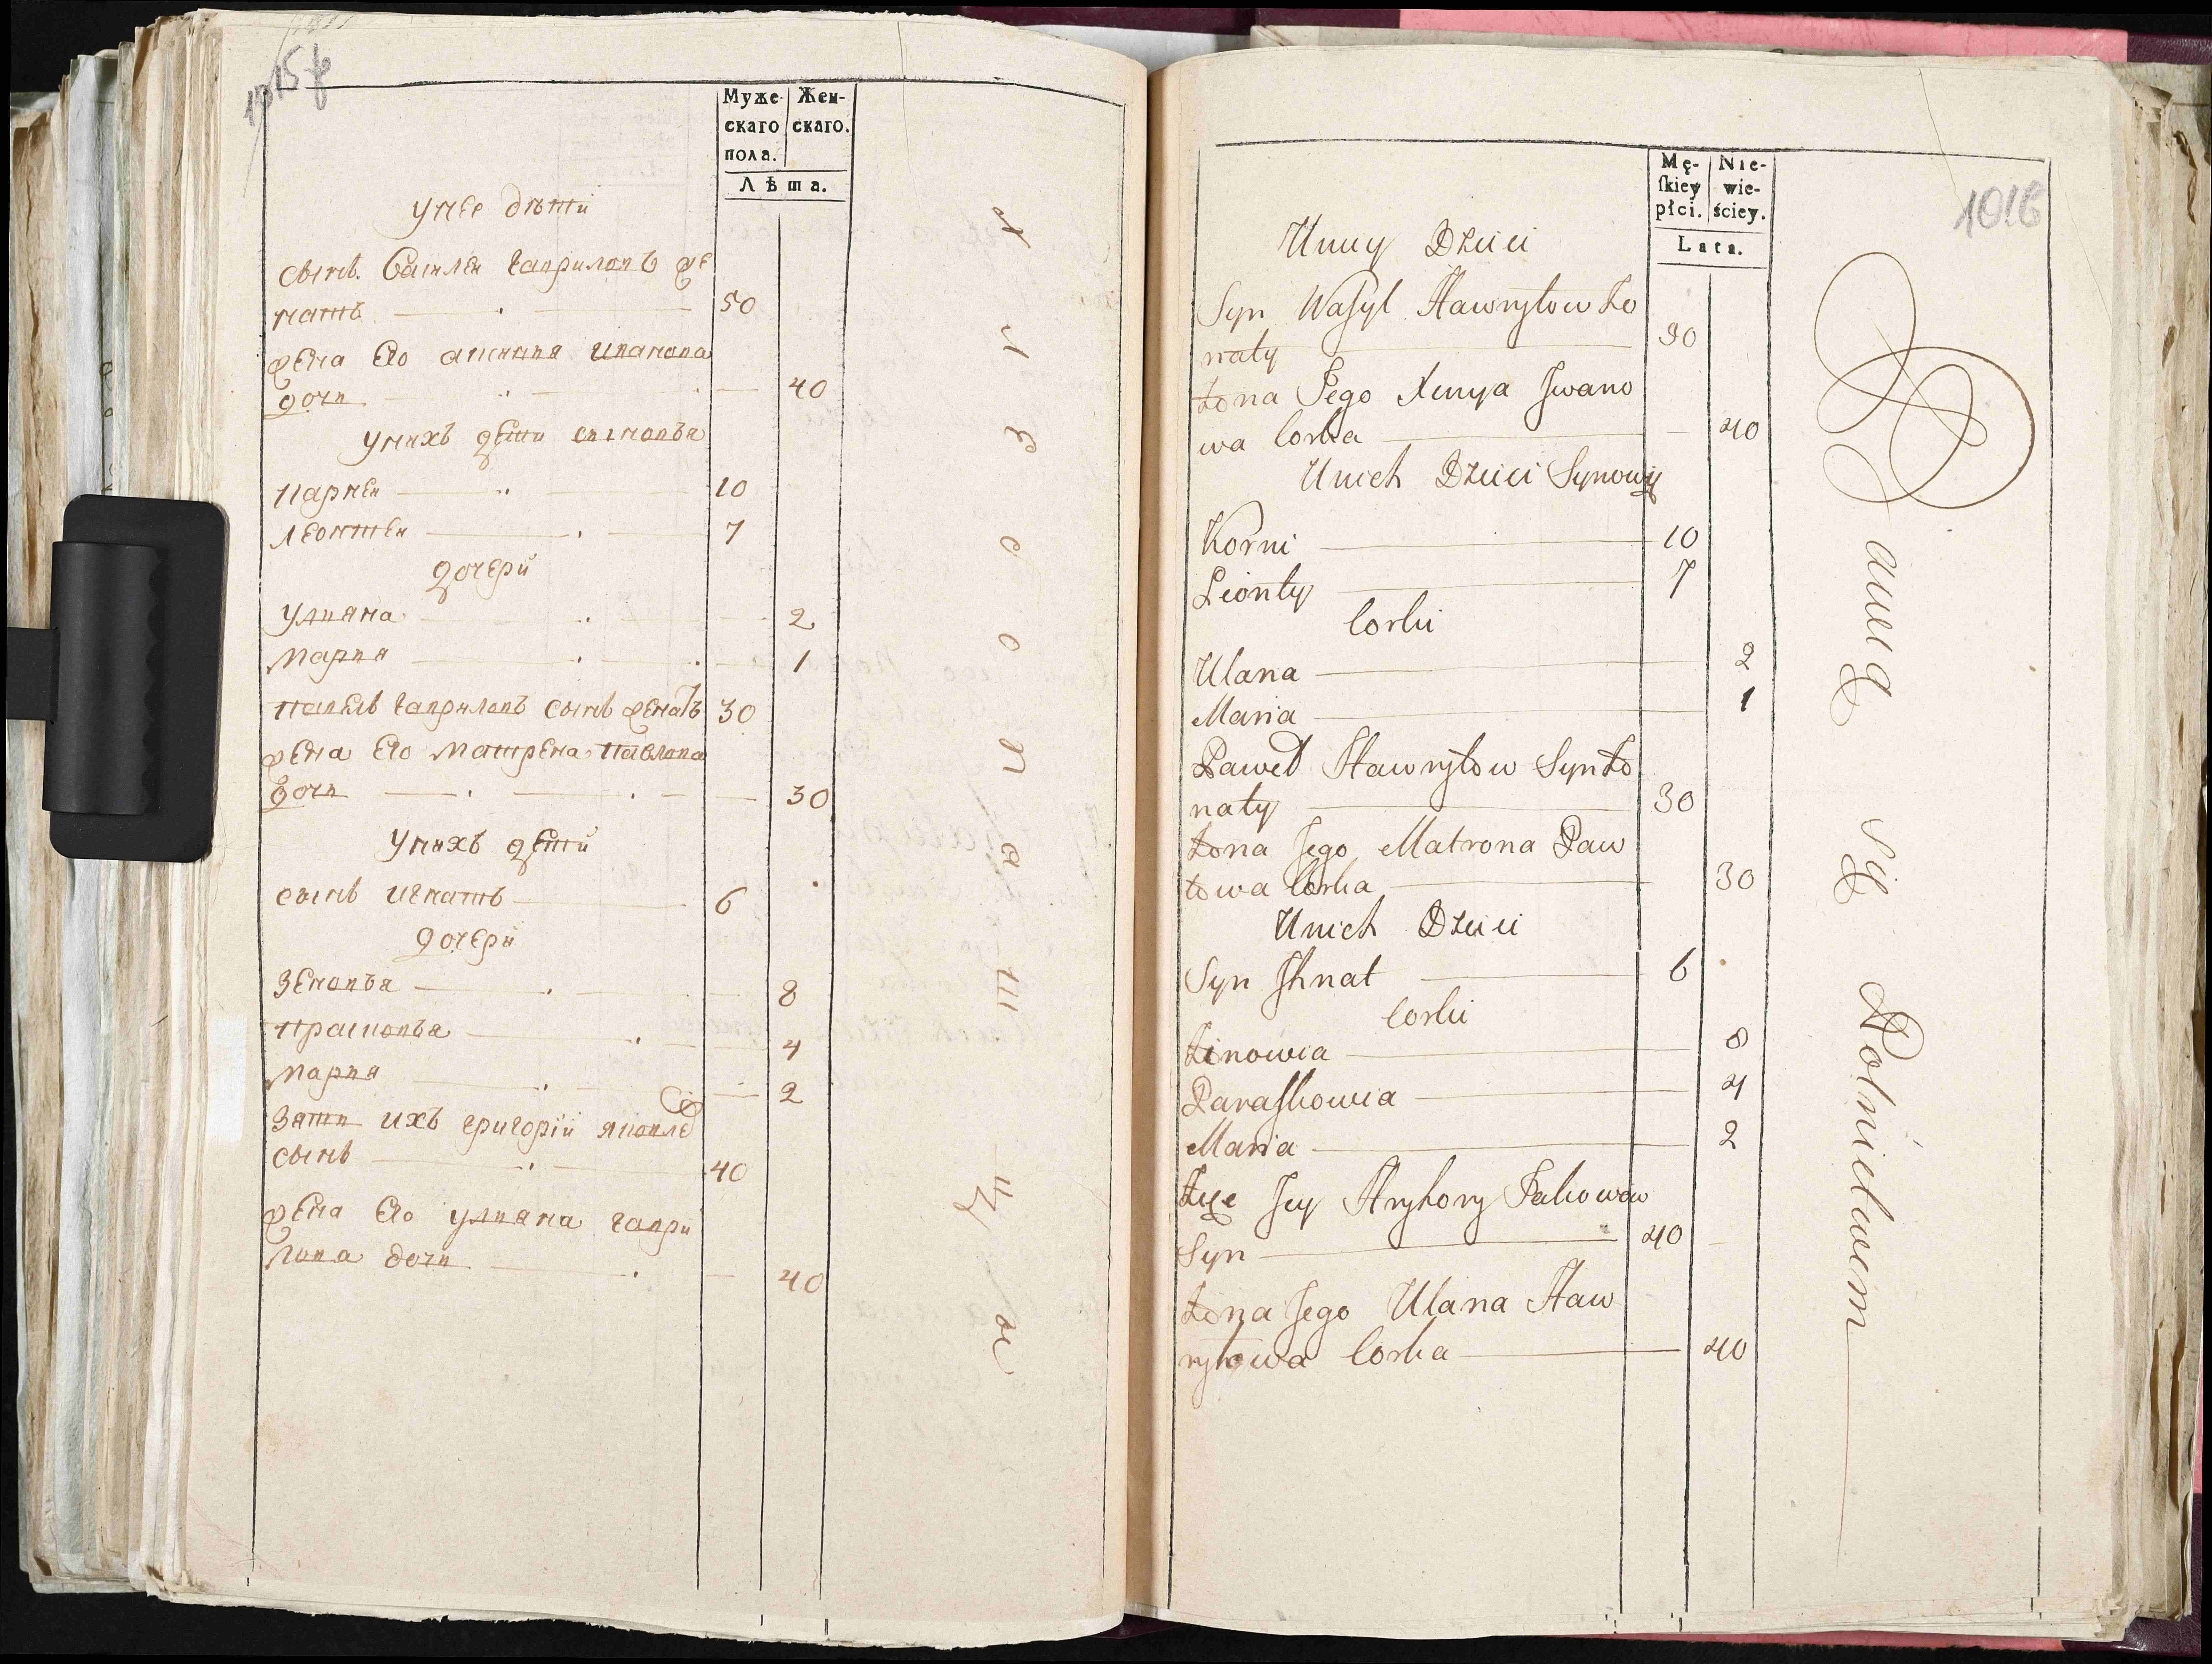 1015
Муже- Жен-
скаго скаго.
пола.
Лѣта.
у нее дѣти
сынъ Василеи гавриловъ же
натъ 50
жена Его аксиния иванова
дочи 40
у нихъ дети сыновья
Карнеи 10
леонтеи 7
дочери
Улияна 2
Мария 1
павелъ гавриловъ сынъ женатъ 30
жена Его Матрена павлова
дочи 30
у нихъ дети
сынъ игнатъ 6
дочери
Зеновья 8
прасковья 4
Мария 2
Зять ихъ григорїи яковле
сынъ 40
жена Его улияна гаври
лова дочи 40
1016
Mę- Nie-
ſkiey wie-
płci. ściey.
Lata.
U niey Dzieci
Syn Waſyl Hawryłow żo
naty 30
żona Jego Xenya Jwano
wa Corka 40
U nich Dzieci Synowie
Korni 10
Lionty 7
Corki
Ulana 2
Maria 1
Paweł Hawryłow Syn żo
naty 30
żona Jego Matrona Paw
łowa Corka 30
U nich Dzieci
Syn Jhnat 6
Corki
Zinowia 8
Paraſkowia 4
Maria 2
Zięć Jey Hryhory Jakowow
Syn 40
żona Jego Ulana Haw
ryłowa Corka 40
Bawią się Rolnictwem